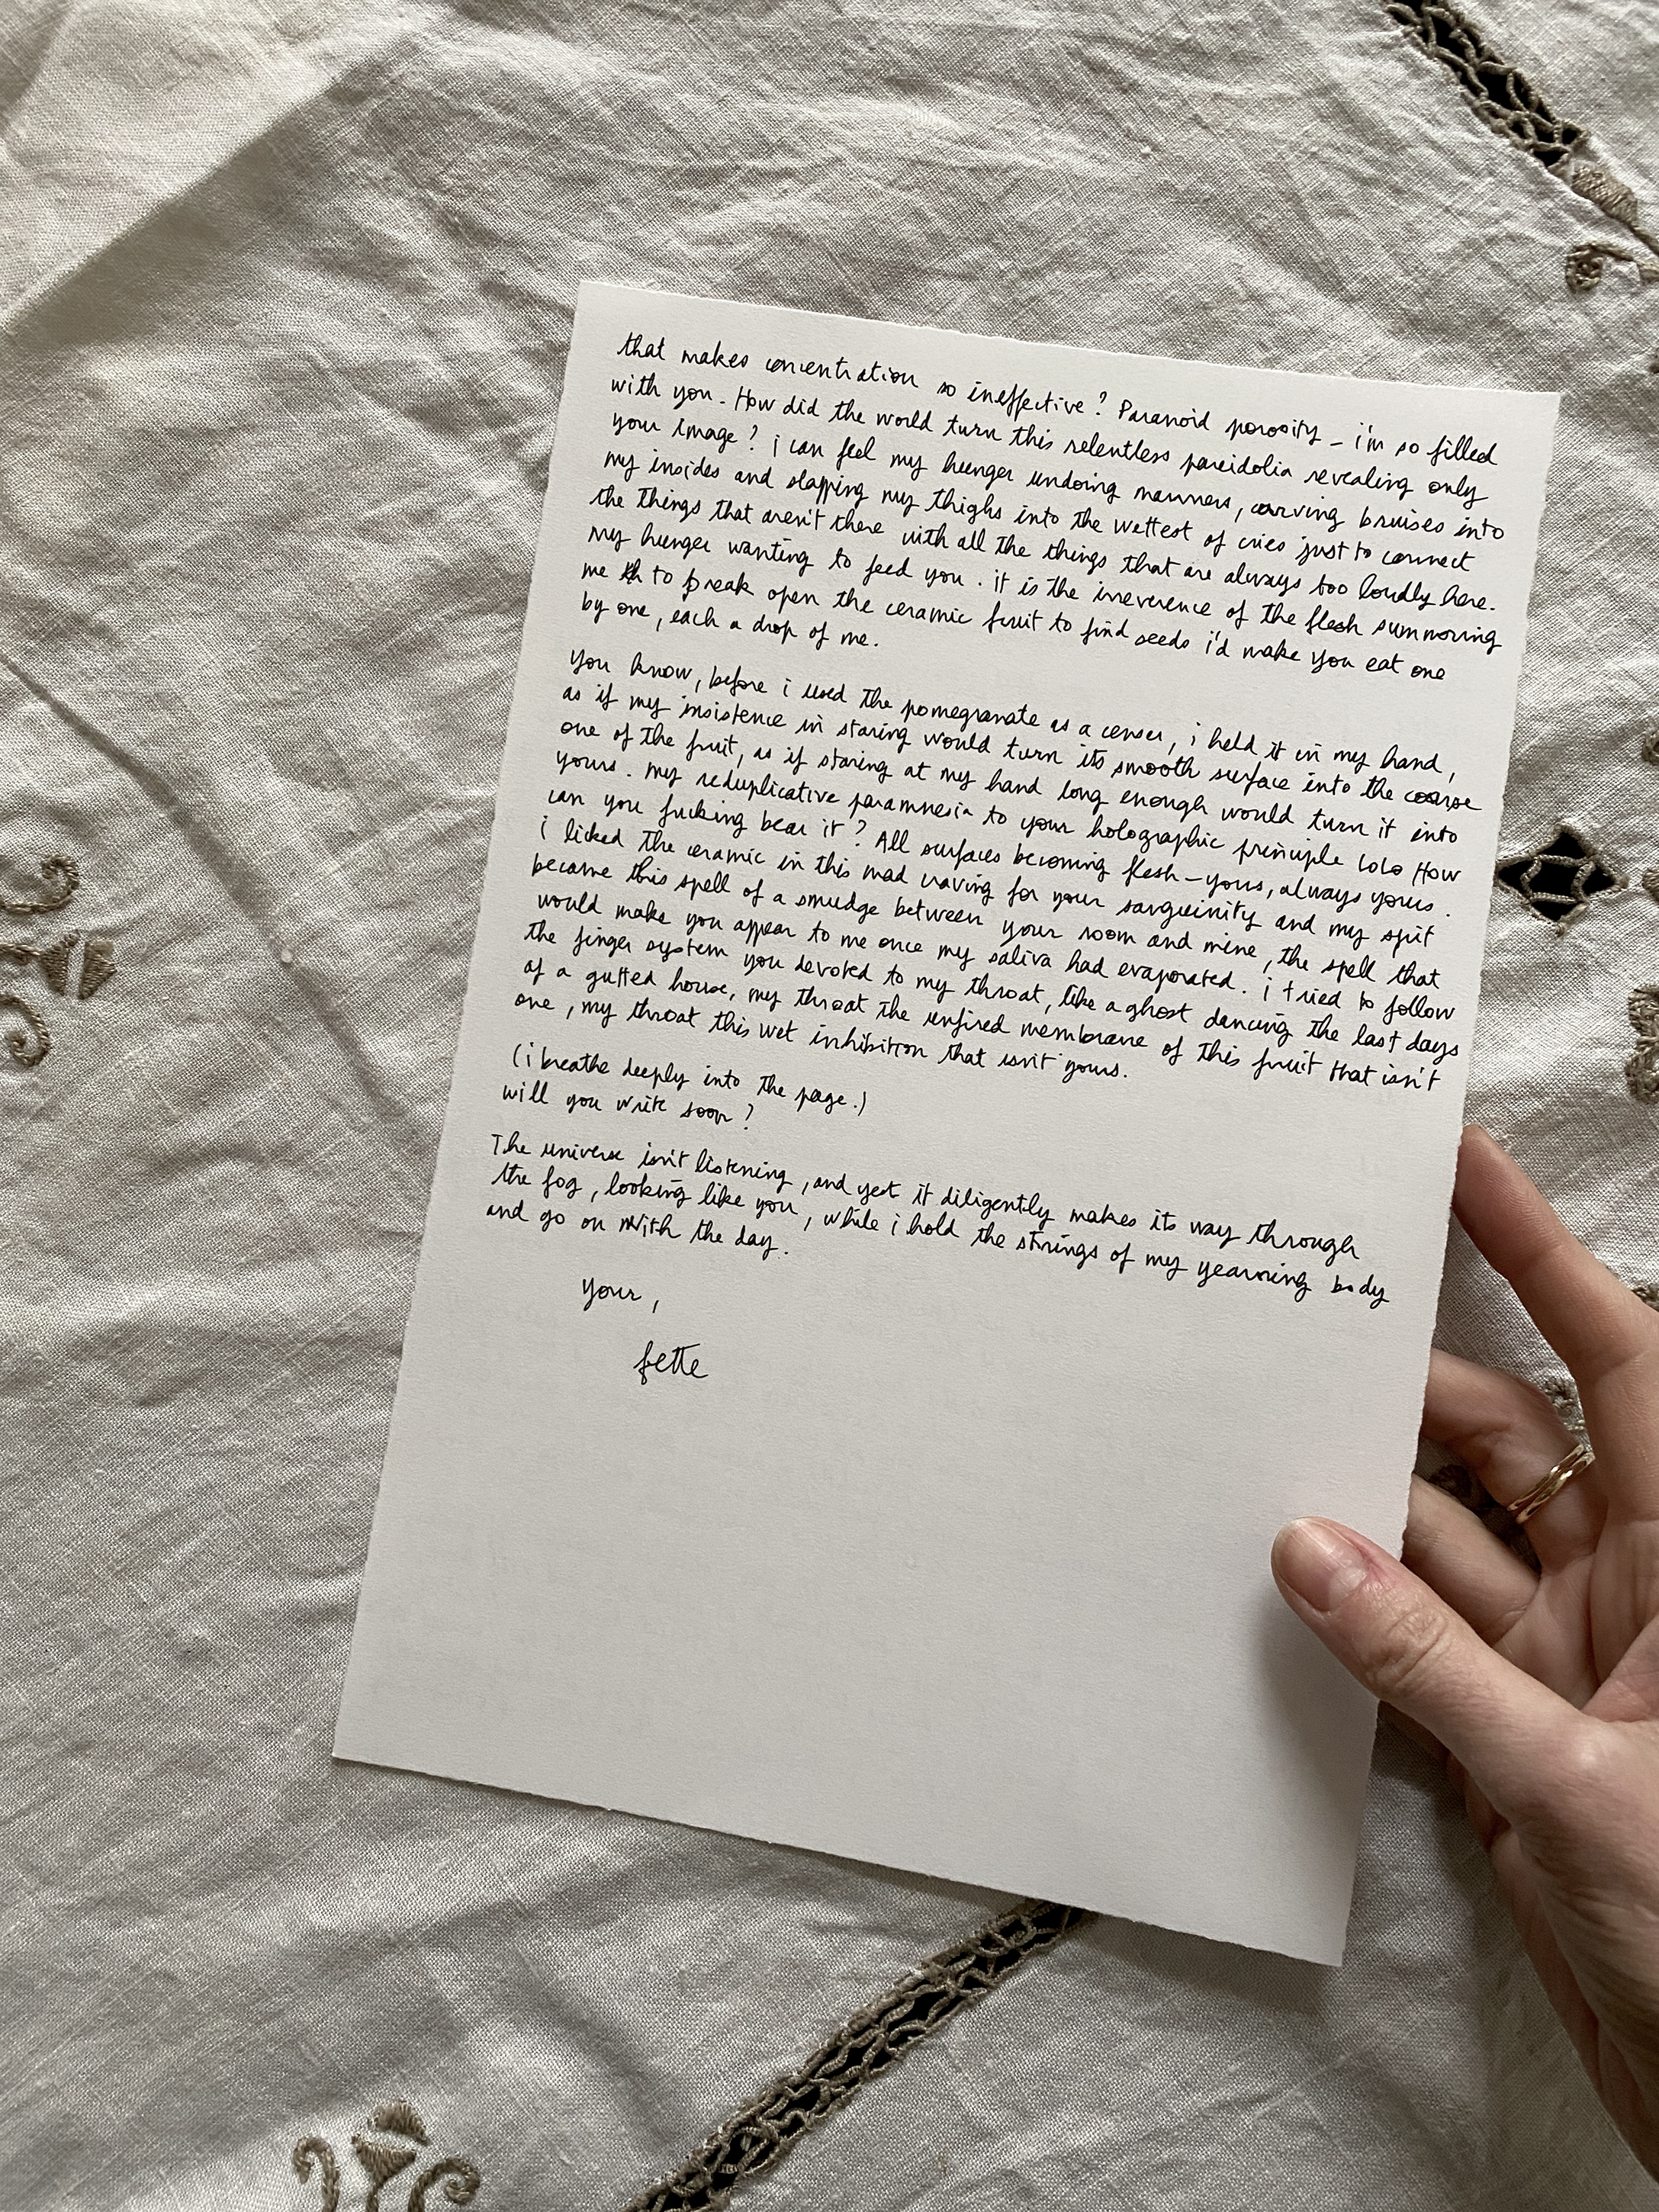 that makes concentration so ineffective? Paranoid porosity – i'm so filled
with you. How did the world turn this relentless pareidolia revealing only
your image? i can feel my hunger undoing manners, carving bruises into
my insides and slapping my thighs into the wettest of cries just to connect
the things that aren't there with all the things that are always too loudly here.
my hunger wanting to feed you. it is the irreverence of the flesh summoning
me to break open the ceramic fruit to find seeds i'd make you eat one
by one, each a drop of me.
You know, before i used the pomegranate as a censer, i held it in my hand,
as if my insistence in staring would turn its smooth surface into the coarse
one of the fruit, as if staring at my hand long enough would turn it into
yours. my reduplicative paramnesia to your holographic principle lolo How
can you fucking bear it? All surfaces becoming flesh – yours, always yours.
i licked the ceramic in this mad craving for your sanguinity and my spit
became this spell of a smudge between your room and mine, the spell that
would make you appear to me once my saliva had evaporated. i tried to follow
the finger system you devoted to my throat, like a ghost dancing the last days
of a gutted house, my throat the unfired membrane of this fruit that isn't
one, my throat this wet inhibition that isn't yours.
(i breathe deeply into the page.)
will you write soon?
The universe isn't listening, and yet it diligently makes its way through
the fog, looking like you, while i hold the strings of my yearning body
and go on with the day.
your,
fette